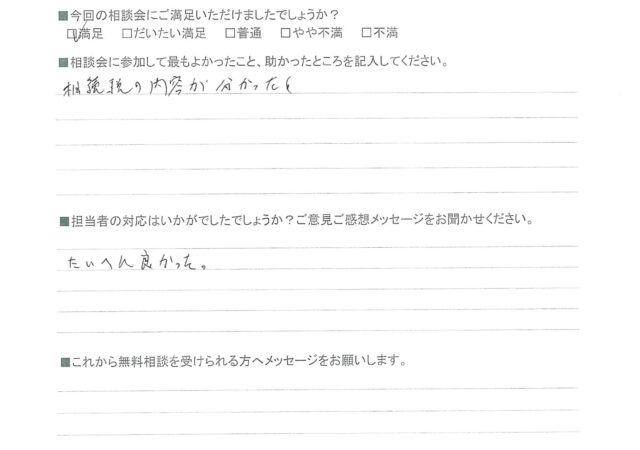 ■今回の相談会にご満足いただけましたでしょうか？
☑満足　□だいたい満足　□普通　□やや不満　□不満
■相談会に参加して最もよかったこと、助かったところを記入してください。
相続税の内容が分かった
■担当者の対応はいかがでしたでしょうか？ご意見ご感想メッセージをお聞かせください。
たいへん良かった。
■これから無料相談を受けられる方へメッセージをお願いします。